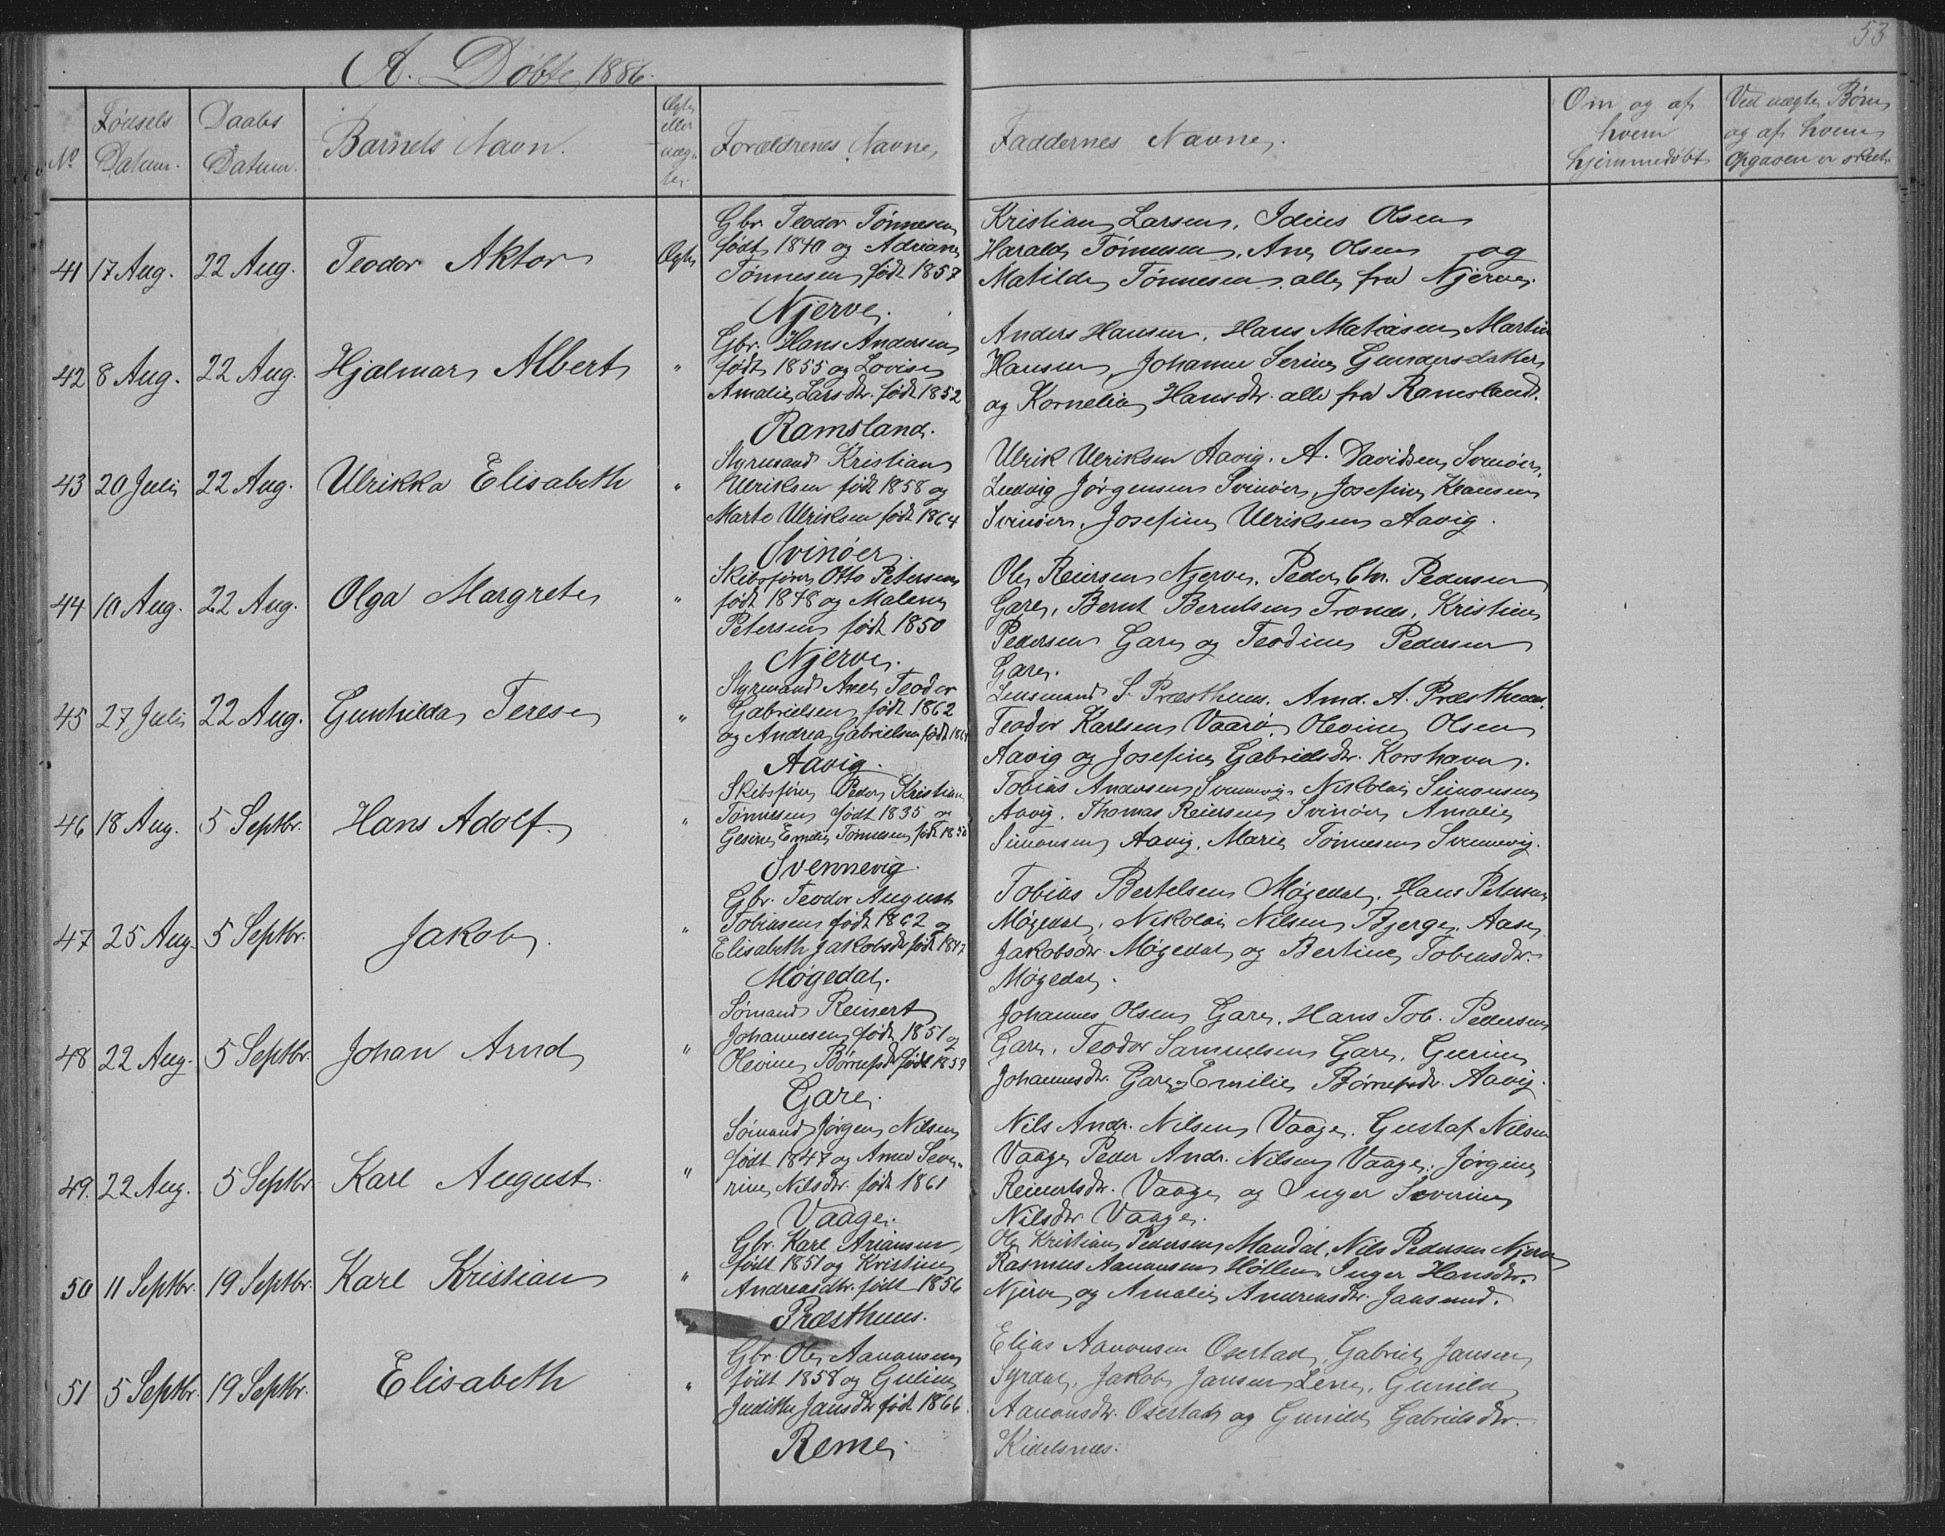 53
A. Døbte 1886.
No
Fødsels Datum.
Daabs Datum.
Barnets Navn.
Ægte eller uæg- te.
Forældrenes Navne,
Faddernes Navne,
Om og af hvem hjemmedøbt
Ved uægte Børn og af hvem Opgaven er skeet.
41 17 Aug. 22 Aug. Teodor Aktor Ægte
Gbr. Teodor Tønnesen
født 1840 og Adriane
Tønnesen, født 1857
Njerve.
Kristian Larsen, Idius Olsen
Harald Tønnesen, Ane Olsen og
Matilde Tønnesen, alle fra Njerve.
42 8 Aug. 22 Aug. Hjalmar Albert "
Gbr. Hans Andersen
født 1855 og Lovise
Amalie Larsdtr. født 1852
Ramsland.
Anders Hansen, Hans Matiasen, Martin
Hansen, Johanne Serine Gundersdatter
og Kornelia Hansdtr. alle fra Ramsland.
43 20 Juli 22 Aug. Ulrikka Elisabeth "
Styrmand Kristian
Ulriksen født 1858 og
Marte Ulriksen født 1864
Svinøer.
Ulrik Ulriksen Aavig. A. Davidsen Svinøer,
Ludvig Jørgensen Svinøer, Josefine Klausen
Svinøer, Josefine Ulriksen Aavig.
44 10 Aug. 22 Aug. Olga Margrete "
Skibsfører Otto Petersen
født 1848 og Malene
Petersen født 1850
Njerve.
Ole Reiersen Njerve, Peder Chr. Pedersen
Gare, Bernt Berntsen Tronæs, Kristine
Pedersen Gare og Teodine Pedersen
Gare.
45 27 Juli 22 Aug. Gunhilda Terese "
Styrmand Axel Teodor
Gabrielsen født 1862
og Andrea Gabrielsen født
Aavig.
Lensmand S. Præsthuus, Amd. A. Præsthuus,
Teodor Karlsen Vaarø, Olevine Olsen
Aavig og Josefine Gabrielsdtr. Korshavn.
46 18 Aug. 5 Septbr. Hans Adolf. "
Skibsfører Peder Kristian
Tønnesen født 1835 og
Gesine Emilie Tønnesen født 1850
Svennevig.
Tobias Andersen Svennevig, Nikolai Simonsen
Aavig, Thomas Reiersen Svinøer, Amalie
Simonsen Aavig, Marie Tønnesen Svennevig.
47 25 Aug 5 Septbr. Jakob. "
Gbr. Teodor August
Tobiasen født 1862 og
Elisabeth Jakobsdtr født 1847
Møgedal.
Tobias Bertelsen Møgedal, Hans Petersen
Møgedal, Nikolai Nilsen Bjerge, Aase
Jakobsdtr Møgedal og Bertine Tobiasdtr.
Møgedal.
48 22 Aug. 5 Septbr. Johan Arnd "
Sømand Reinert
Johannesen født 1851 og
Olevine Børresdtr født 1859
Gare.
Johannes Olsen Gare, Hans Tob. Pedersen
Gare, Teodor Samuelsen Gare, Gurine
Johannesdtr. Gare og Emilie Børresdtr. Aavig.
49. 22 Aug. 5 Septbr Karl August. "
Sømand Jørgen Nilsen
født 1847 og Anne Seve-
rine Nilsdtr. født 1861
Vaage.
Nils Andr. Nilsen Vaage, Gustaf Nilsen
Vaage, Peder Andr. Nilsen Vaage, Jørgine
Reinertsdtr. Vaage og Inger Severine
Nilsdtr Vaage.
50 11 Septbr. 19 Septbr. Karl Kristian "
Gbr. Karl Ariansen
født 1851 og Kristine
Andreasdtr. født 1856
Præsthuus.
Ole Kristian Pedersen Mandal, Nils Pedersen Njerve
Rasmus Aanonsen Høllen, Inger Hansdtr.
Njerve og Amalie Andreasdtr. Jaasund.
51 5 Septbr. 19 Septbr. Elisabeth "
Gbr. Ole Aanonsen
født 1858 og Guline
Judithe Jansdtr født 1866.
Reme.
Elias Aanonsen Osestad, Gabriel Jansen
Syrdal, Jakob Jansen Lene, Gunild
Aanonsdtr. Osestad og Gunild Gabrielsdtr.
Kidelsnæs.